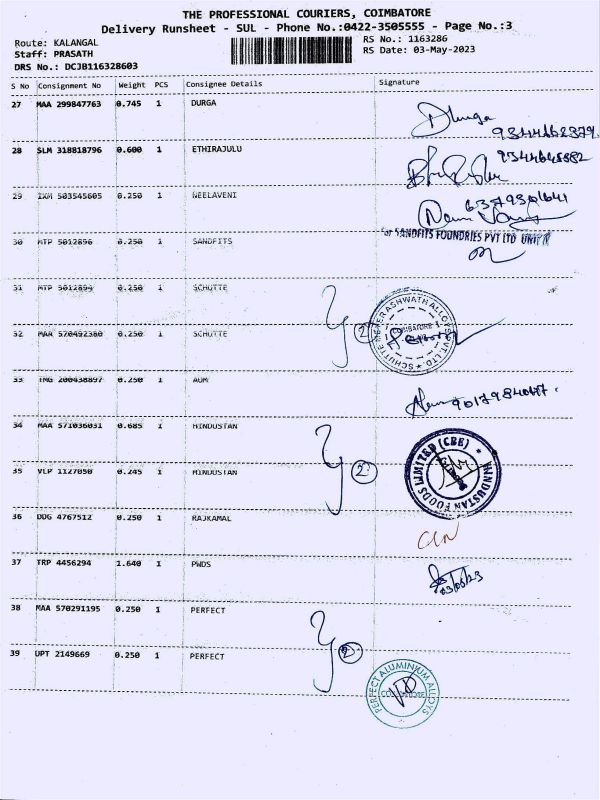 THE PROFESSIONAL COURIERS, COIMBATORE
Delivery Runsheet - SUL - Phone No.:0422-3505555 - Page No.:3
Route: KALANGAL RS No.: 1163286
Staff: PRASATH RS Date: 03-May-2023
DRS No.: DCJB116328603
S No Consignment No Weight PCS Consignee Details Signature
27 MAA 299847763 0.745 1 DURGA
Dhurga
28 SLM 318818796 0.600 1 ETHIRAJULU
9344648882
29 IXM 503545605 0.250 1 NEELAVENI
6379301641
30 MTP 5012896 0.250 1 SANDFITS
for SANDFITS FOUNDRIES PVT LTD UNIT
31 MTP 5012894 0.250 1 SCHUTTE
32 MAA 570492380 0.250 1 SCHUTTE
2
SCHUTTE MEYER ASHWATH ALLOYS PVT. LTD.
COIMBATORE
33 TMG 200438897 0.250 1 AUM
34 MAA 571036031 0.685 1 HINDUSTAN
2
HINDUSTAN FOODS LIMITED (CBE)
35 VLP 1127050 0.245 1 HINDUSTAN
36 DDG 4767512 0.250 1 RAJKAMAL
37 TRP 4456294 1.640 1 PWDS
03/05/23
38 MAA 570291195 0.250 1 PERFECT
2
39 UPT 2149669 0.250 1 PERFECT
PERFECT ALUMINIUM ALLOYS
COIMBATORE